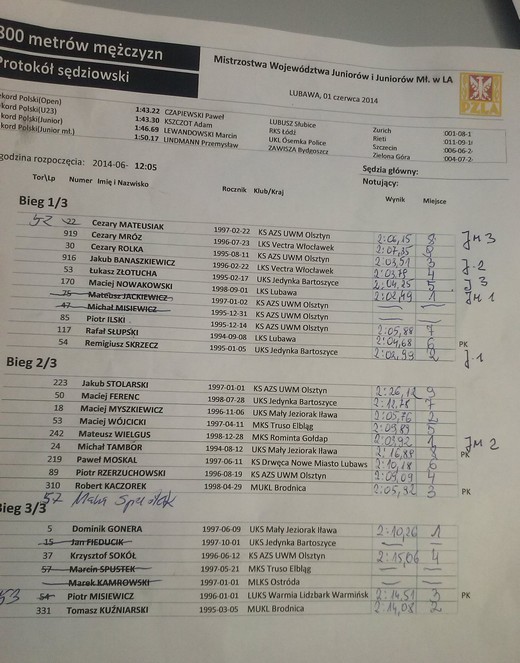 800 metrów mężczyzn
Protokół sędziowski
Mistrzostwa Województwa Juniorów i Juniorów Mł. w LA
LUBAWA, 01 czerwca 2014
PZLA
kord Polski(Open) 1:43.22 CZAPIEWSKI Paweł LUBUSZ Słubice Zurich 001-08-1
kord Polski(U23) 1:43.30 KSZCZOT Adam RKS Łódź Rieti 011-09-1
kord Polski(Junior) 1:46.69 LEWANDOWSKI Marcin UKL Ósemka Police Szczecin 006-06-2
kord Polski(Junior mł.) 1:50.17 LINDMANN Przemysław ZAWISZA Bydgoszcz Zielona Góra 004-07-2
godzina rozpoczęcia: 2014-06- 12:05
Sędzia główny:
Notujący:
Tor\Lp Numer Imię i Nazwisko Rocznik Klub/Kraj Wynik Miejsce
Bieg 1/3
52 22 Cezary MATEUSIAK 1997-02-22 KS AZS UWM Olsztyn 2:06,15 8 JM 3
919 Cezary MRÓZ 1996-07-23 LKS Vectra Włocławek 9
30 Cezary ROLKA 1995-08-11 KS AZS UWM Olsztyn 2:03,51 3 J-2
916 Jakub BANASZKIEWICZ 1996-02-22 LKS Vectra Włocławek 4
53 Łukasz ZŁOTUCHA 1995-02-17 UKS Jedynka Bartoszyce 2:04,25 5 J 3
170 Maciej NOWAKOWSKI 1998-09-01 LKS Lubawa 1 JM 1
75 Mateusz JACKIEWICZ 1997-01-02 KS AZS UWM Olsztyn
47 Michał MISIEWICZ 1995-12-31 KS AZS UWM Olsztyn
85 Piotr ILSKI 1995-12-14 KS AZS UWM Olsztyn 2:05,88 7
117 Rafał SŁUPSKI 1994-09-08 LKS Lubawa 2:04,68 6 PK
54 Remigiusz SKRZECZ 1995-01-05 UKS Jedynka Bartoszyce 2:02,99 2 J.1
Bieg 2/3
223 Jakub STOLARSKI 1997-01-01 KS AZS UWM Olsztyn 2:26,12 9
50 Maciej FERENC 1998-07-28 UKS Jedynka Bartoszyce 7
18 Maciej MYSZKIEWICZ 1996-11-06 UKS Mały Jeziorak Iława 2:05,76 2
53 Maciej WÓJCICKI 1997-04-11 MKS Truso Elbląg 2:09,83 5
242 Mateusz WIELGUS 1998-12-28 MKS Rominta Gołdap 2:03,92 1 JM 2
24 Michał TAMBOR 1994-08-12 UKS Mały Jeziorak Iława 2:16,88 8 PK
219 Paweł MOSKAL 1997-06-11 KS Drwęca Nowe Miasto Lubaws 2:10,18 6
89 Piotr RZERZUCHOWSKI 1996-08-19 KS AZS UWM Olsztyn 2:09,09 4
310 Robert KACZOREK 1998-04-29 MUKL Brodnica 2:05,92 3 PK
57
Bieg 3/3
5 Dominik GONERA 1997-06-09 UKS Mały Jeziorak Iława 2:10,26 1
15 Jan FIEDUCIK 1997-10-01 UKS Jedynka Bartoszyce
37 Krzysztof SOKÓŁ 1996-06-12 KS AZS UWM Olsztyn 2:15,06 4
57 Marcin SPUSTEK 1997-05-21 MKS Truso Elbląg
Marek KAMROWSKI 1997-01-01 MLKS Ostróda
53 54 Piotr MISIEWICZ 1996-01-01 LUKS Warmia Lidzbark Warmińsk 2:14,51 3 PK
331 Tomasz KUŹNIARSKI 1995-03-05 MUKL Brodnica 2:14,08 2